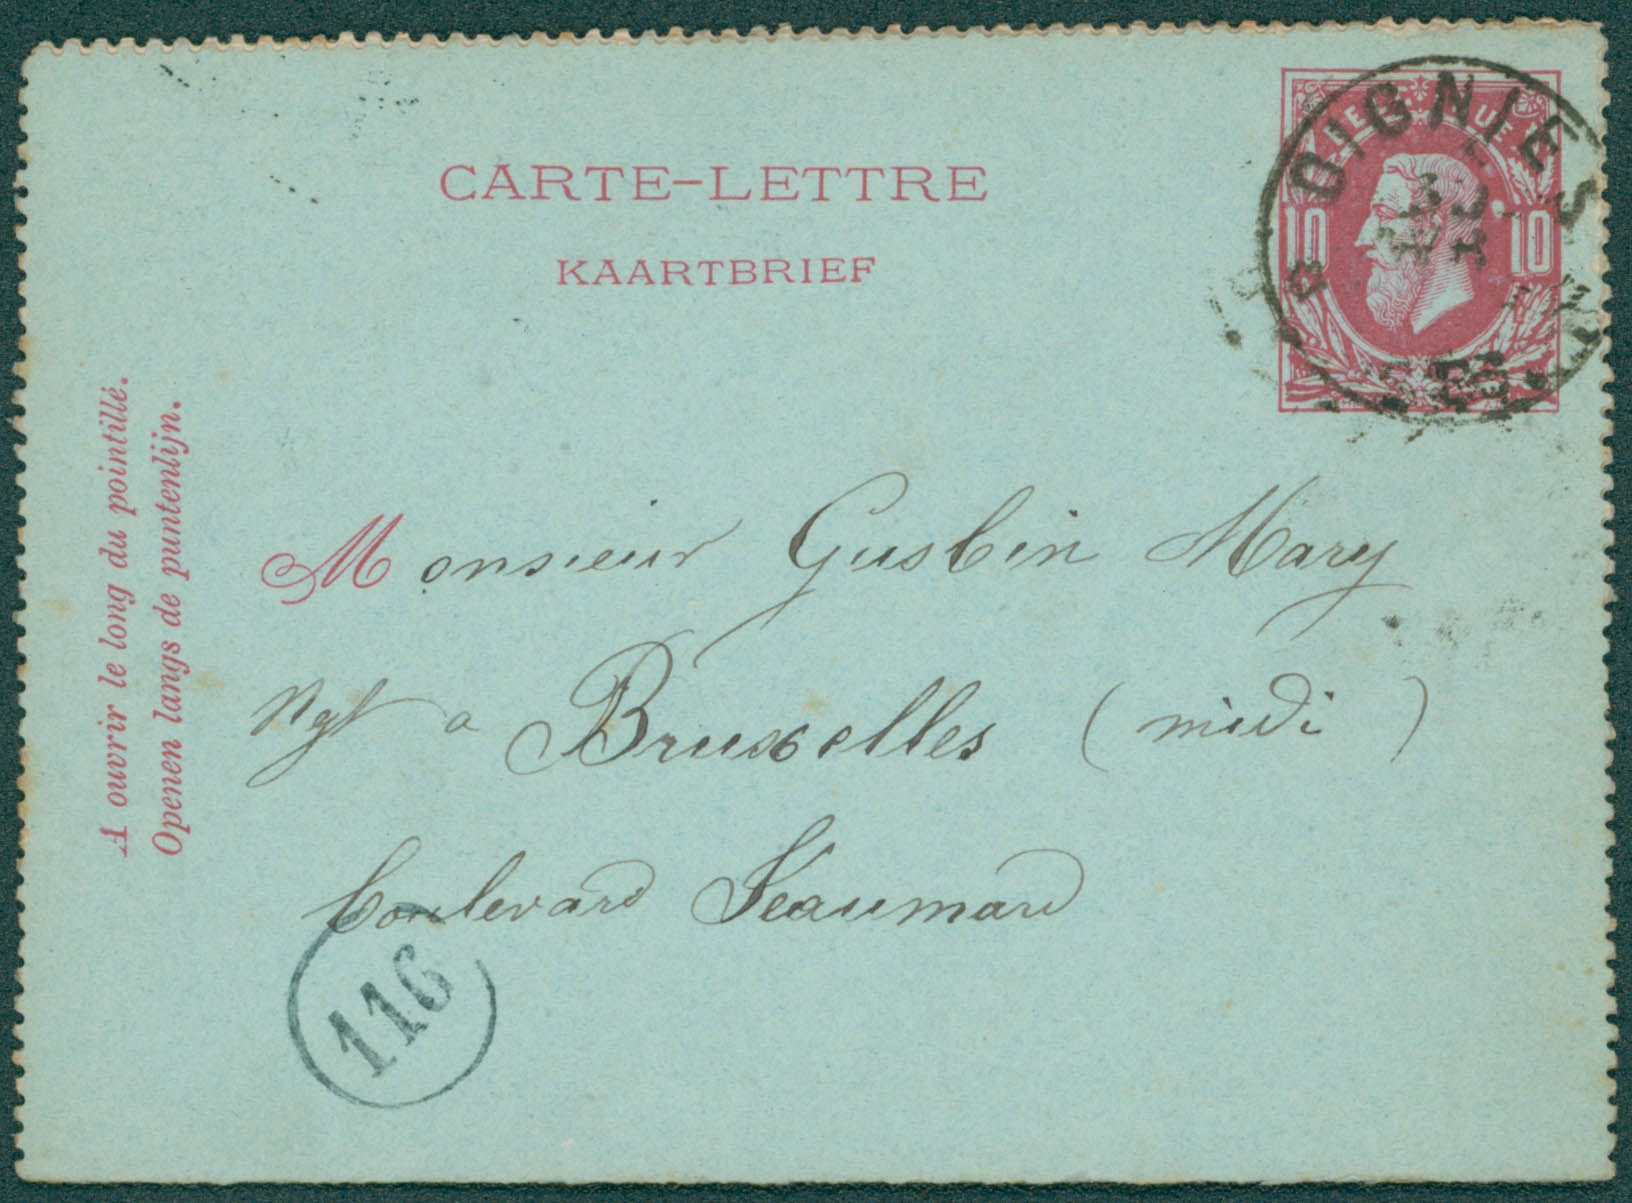 CARTE-LETTRE
KAARTBRIEF
BELGIQUE
10 10
OIGNIES
A ouvrir le long du pointillé.
Openen langs de puntenlijn.
Monsieur Gusbin Mary
Ngt a Bruxelles (midi)
Boulevard Jeaumard
116